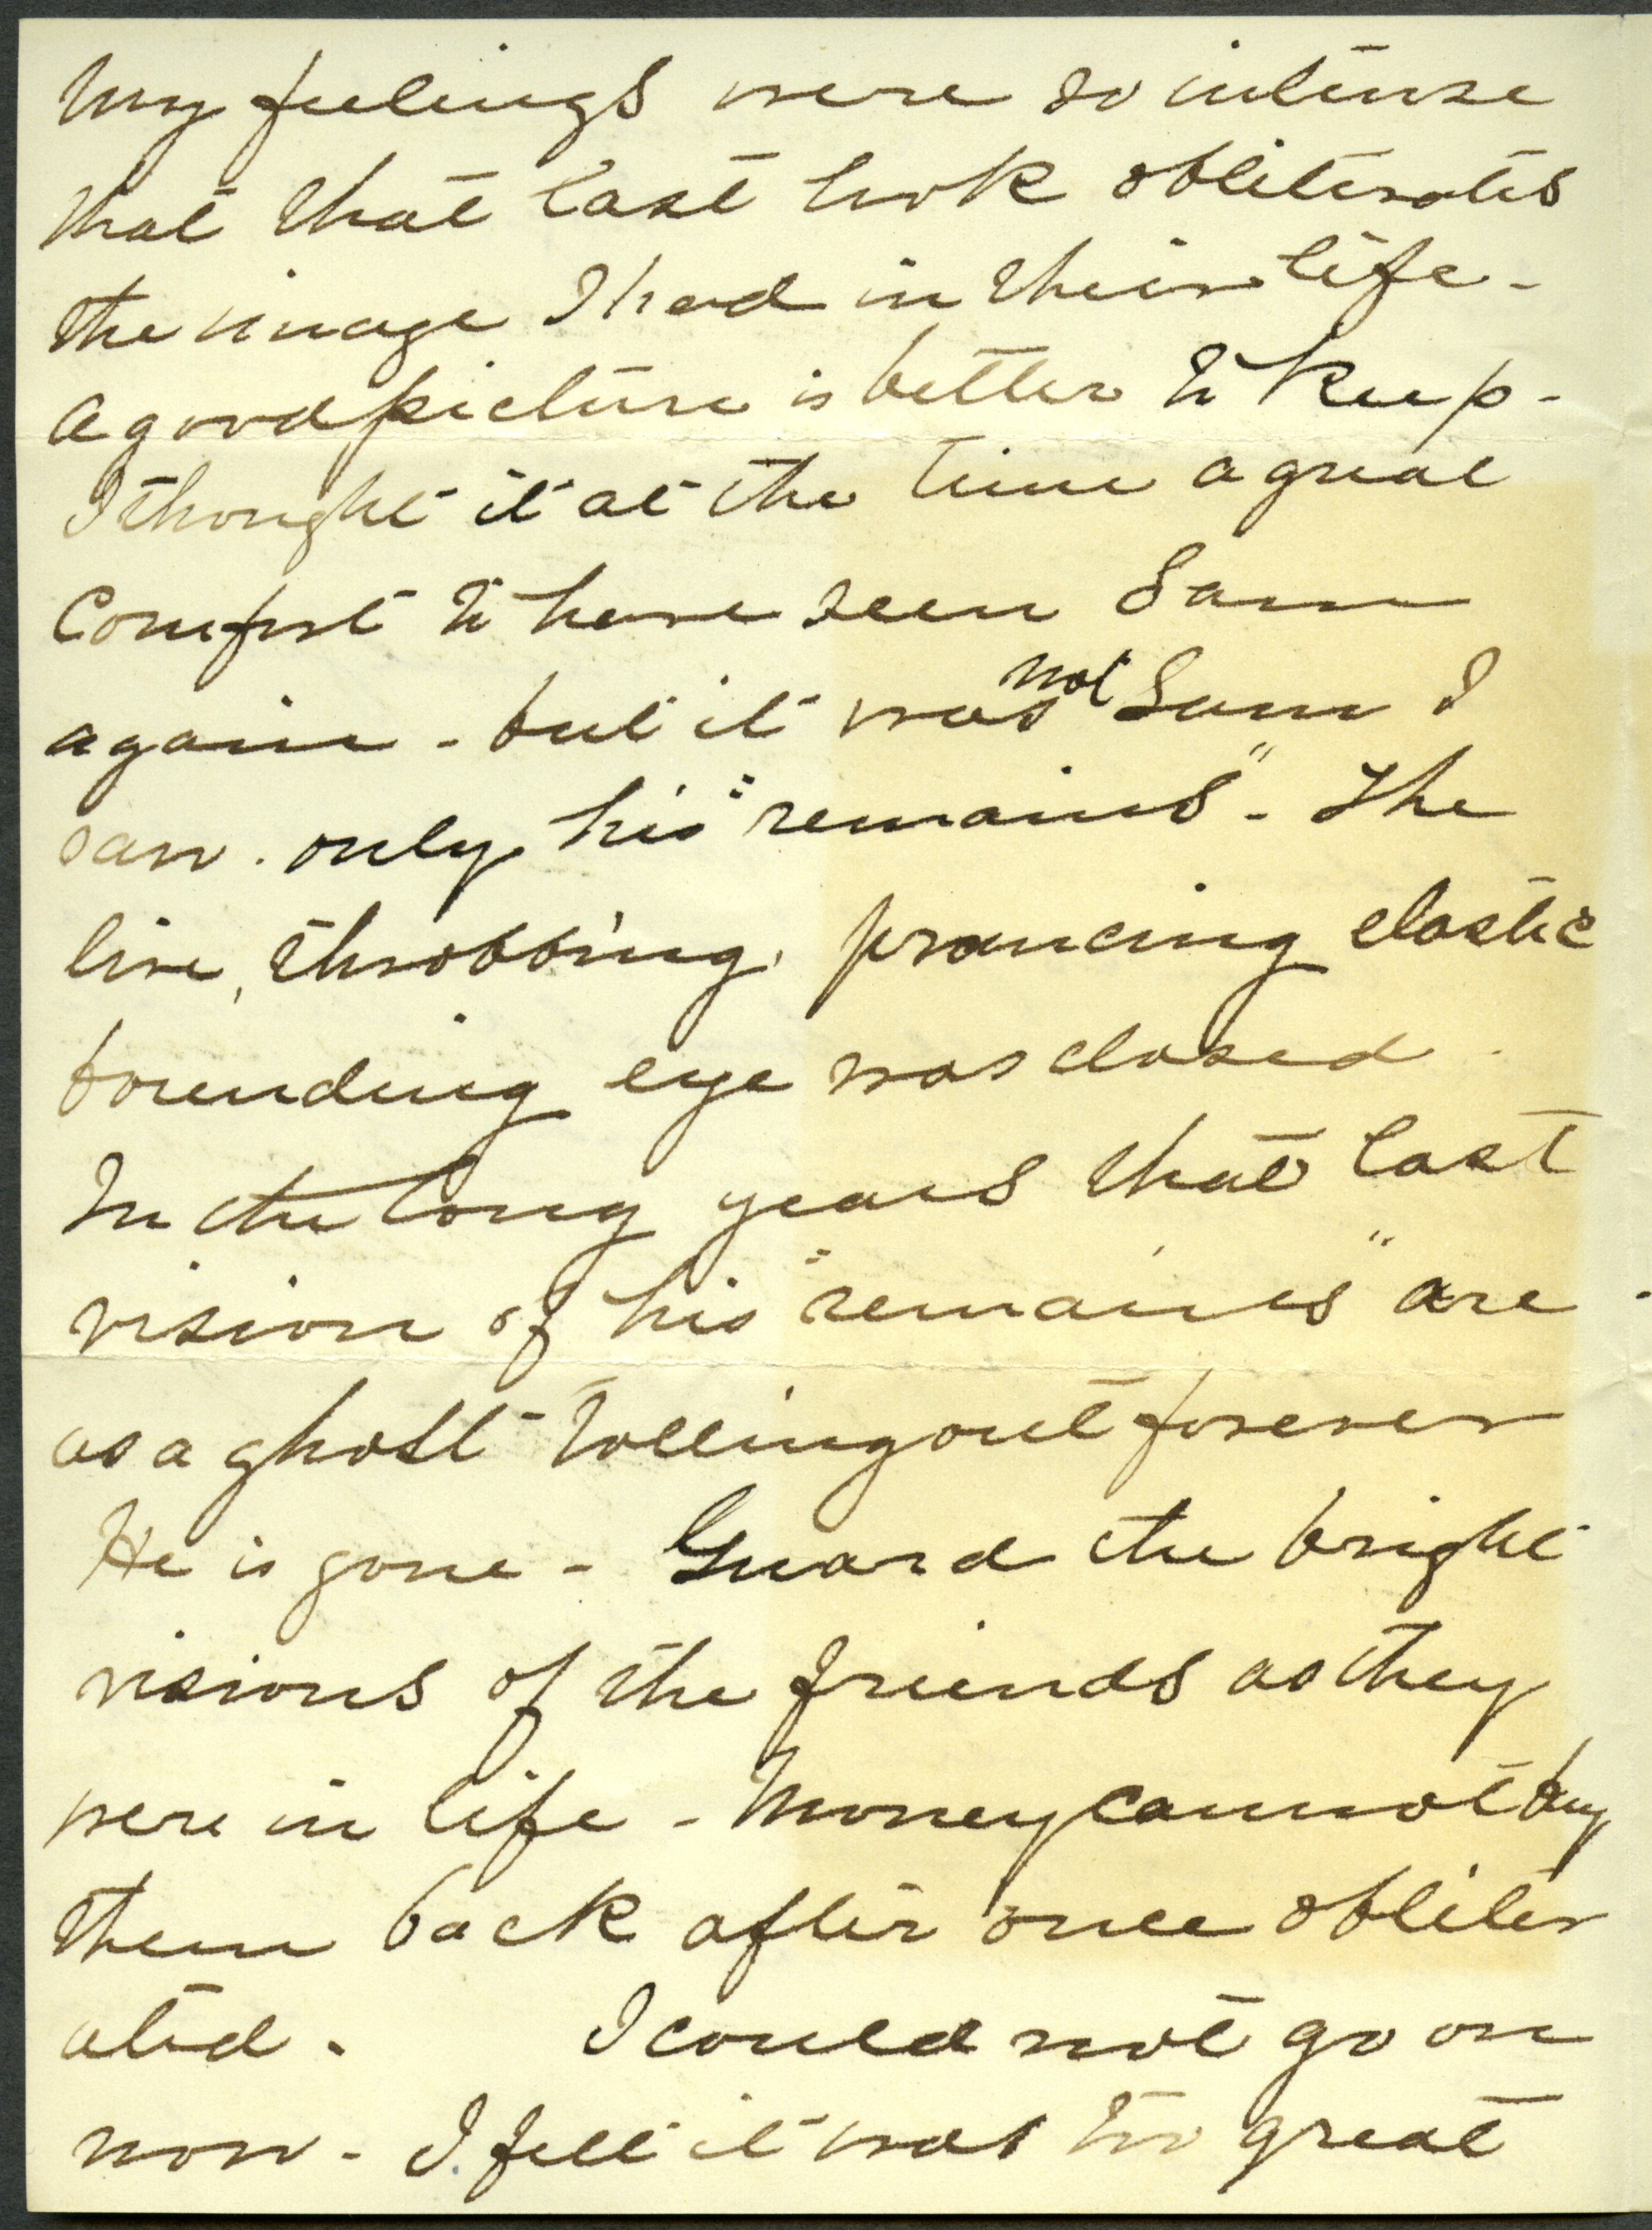 My feelings were so intense
that that last look obliterates
the image I had in their life -
a good picture is better to keep -
I thought it at the time a great
Comfort to have seen Sam
again - but it was not Sam I
saw. only his "remains" - The
live, throbbing, prancing elastic
bounding eye was closed.
In the long years that last
vision of his "remains" are
as a ghost tolling out forever
He is gone - Guard the bright
visions of the friends as they
were in life - Money cannot buy
them back after once obliter
ated. I could not go on
now - I felt it was too great